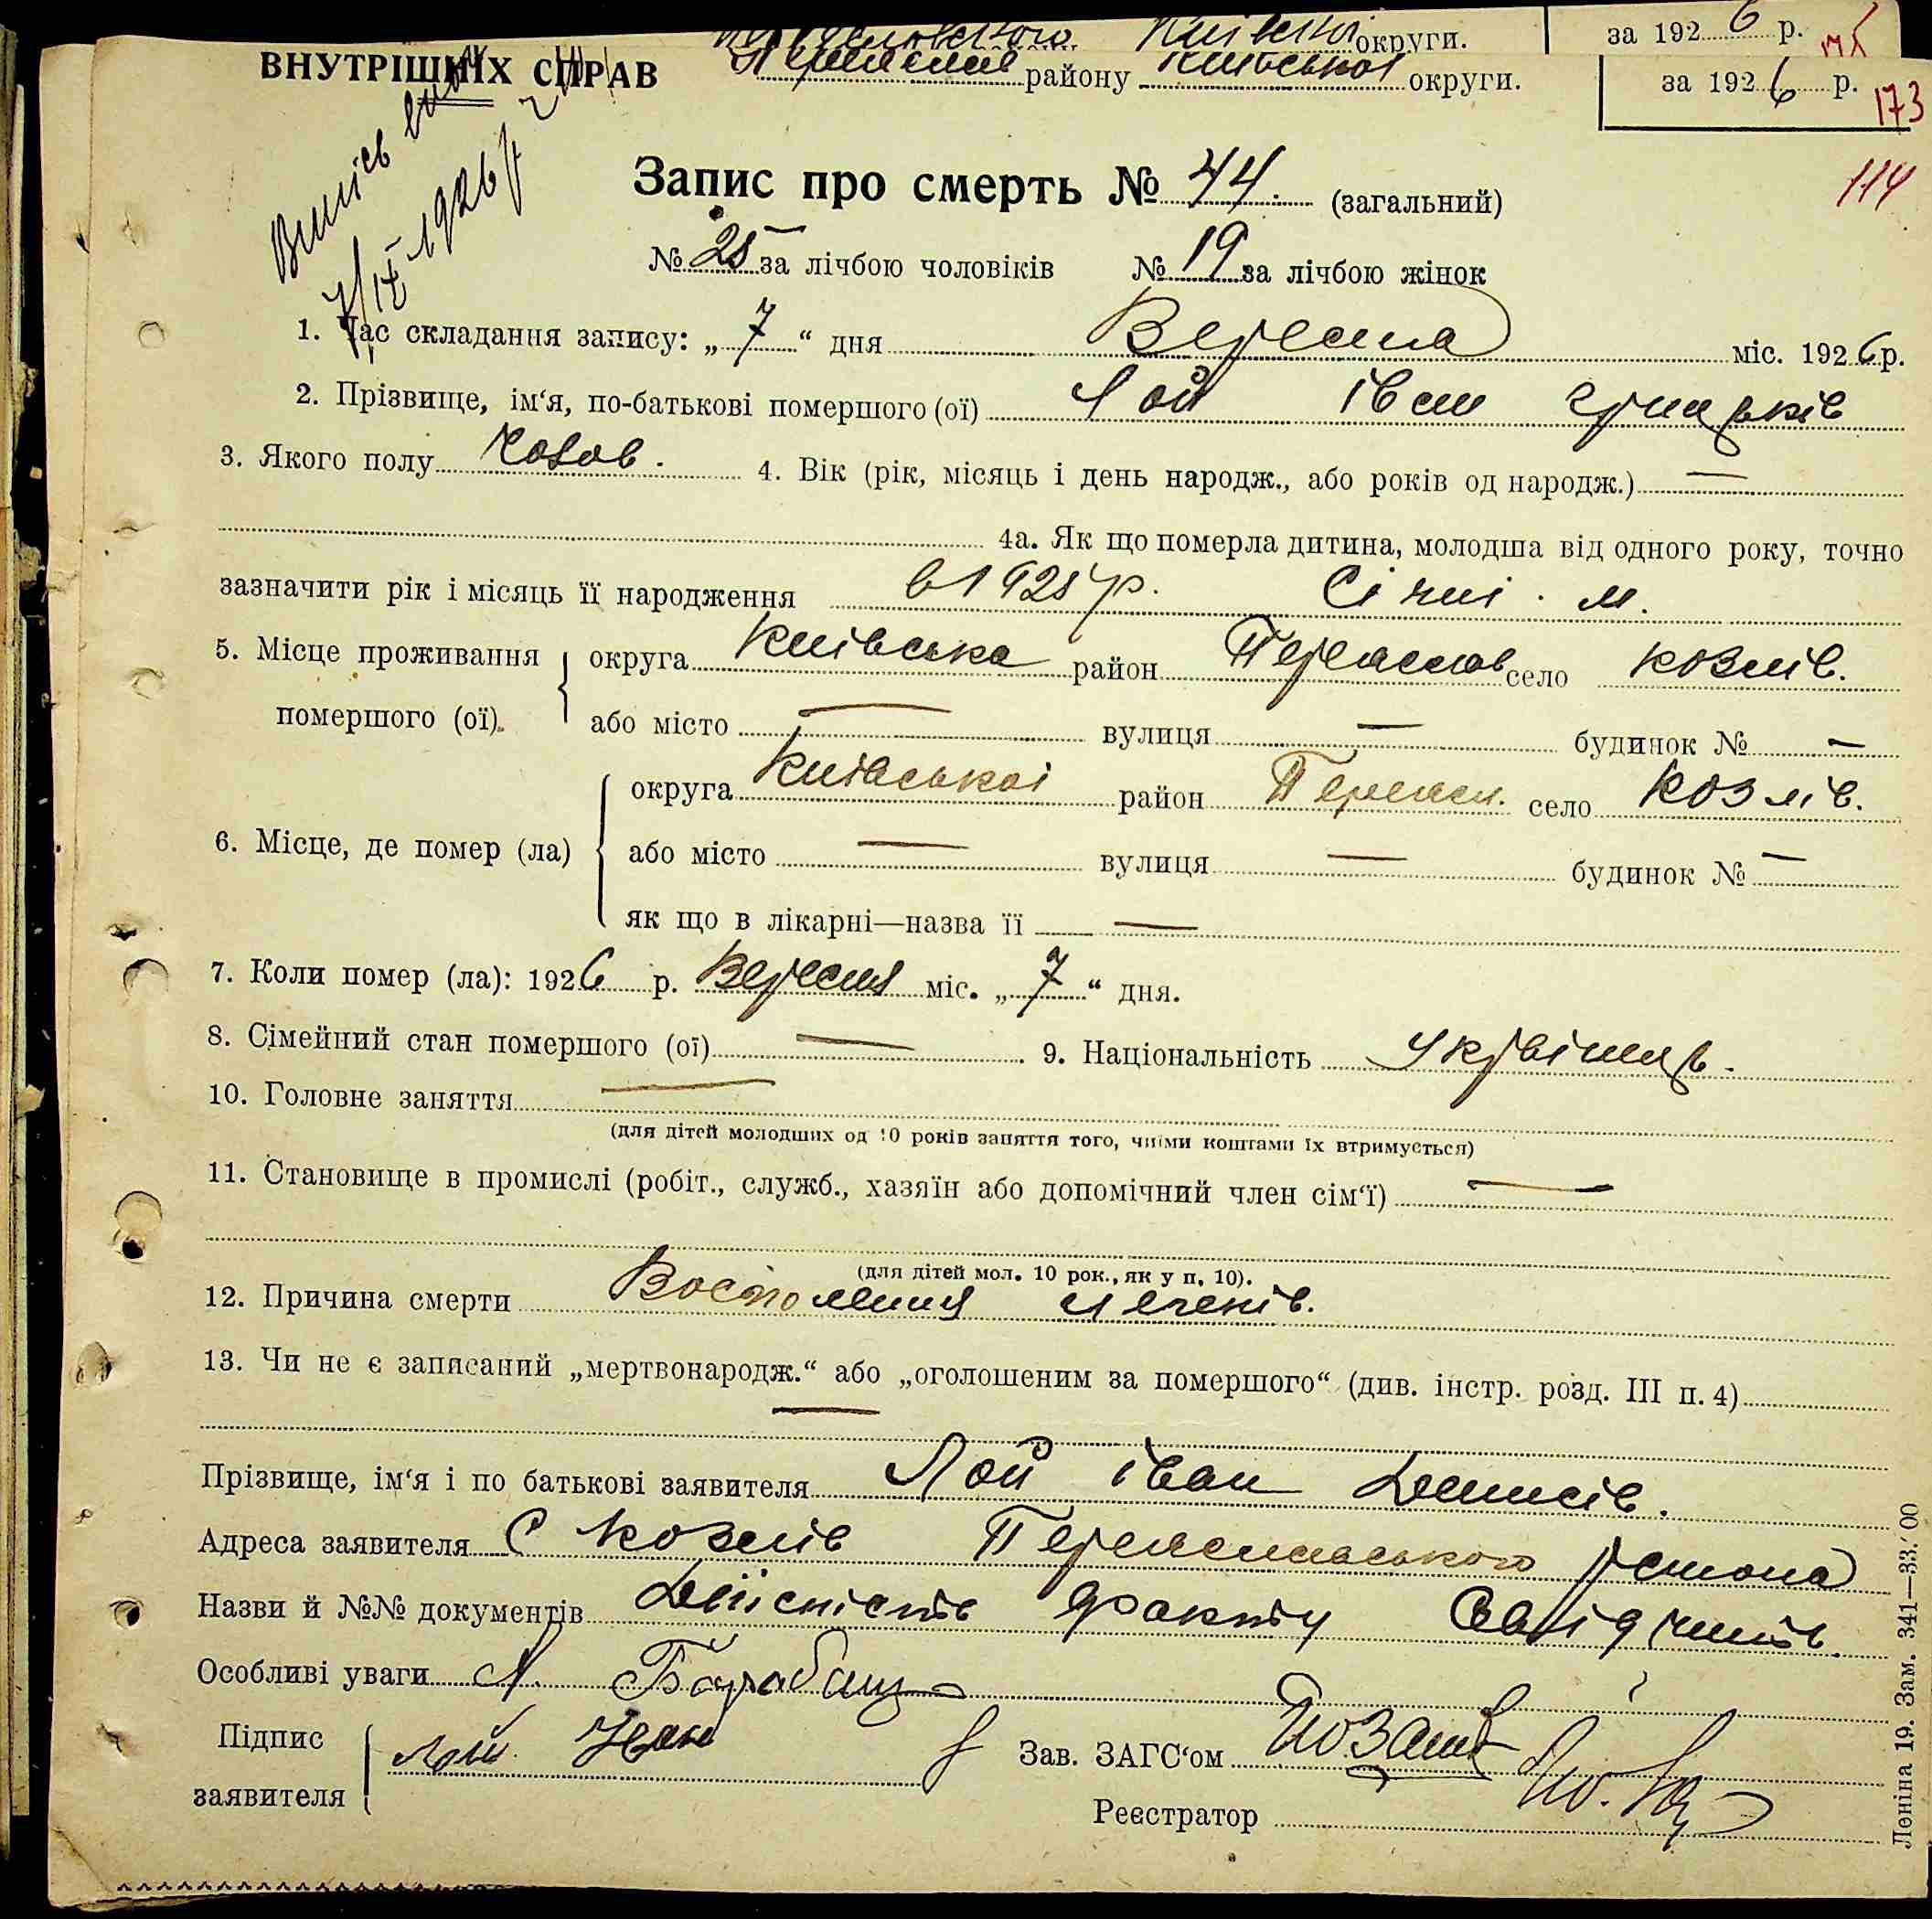 округи. за 1926 р.
ВНУТРІШНІХ СПРАВ району округи. за 1926 р. 173
114
7/IX 1926 р
Запис про смерть № 44. (загальний)
№ 25 за лічбою чоловіків № 19 за лічбою жінок
1. Час складання запису: „ 7 “ дня Вересня міс. 1926 р.
2. Прізвище, ім‘я, по-батькові помершого (ої) Лой Іван Грицьків
3. Якого полу чолов. 4. Вік (рік, місяць і день народж., або років од народж.) —
4а. Як що померла дитина, молодша від одного року, точно
зазначити рік і місяць її народження в 1925 р. Січні м.
5. Місце проживання округа Київська район Переяслов село Козлів.
помершого (ої). або місто — вулиця — будинок № —
округа Київськоі район Переясл. село Козлів.
6. Місце, де помер (ла) або місто — вулиця — будинок № —
як що в лікарні—назва її —
7. Коли помер (ла): 1926 р. Вересня міс. „ 7 “ дня.
8. Сімейний стан помершого (ої) — 9. Національність Українець.
10. Головне заняття —
(для дітей молодших од 10 років заняття того, чиїми коштами їх втримується)
11. Становище в промислі (робіт., служб., хазяїн або допомічний член сім‘ї) —
(для дітей мол. 10 рок., як у п. 10).
12. Причина смерти
13. Чи не є записаний „мертвонародж.“ або „оголошеним за помершого“ (див. інстр. розд. III п. 4)
—
Прізвище, ім‘я і по батькові заявителя Лой Іван Денисів.
Адреса заявителя С Козлів Переяславського района
Назви й №№ документів Дійсність факту свідчить
Особливі уваги Л. Барабаш
Підпис заявителя Лой Иван Зав. ЗАГС‘ом
Реєстратор
Леніна 19. Зам. 341—33.